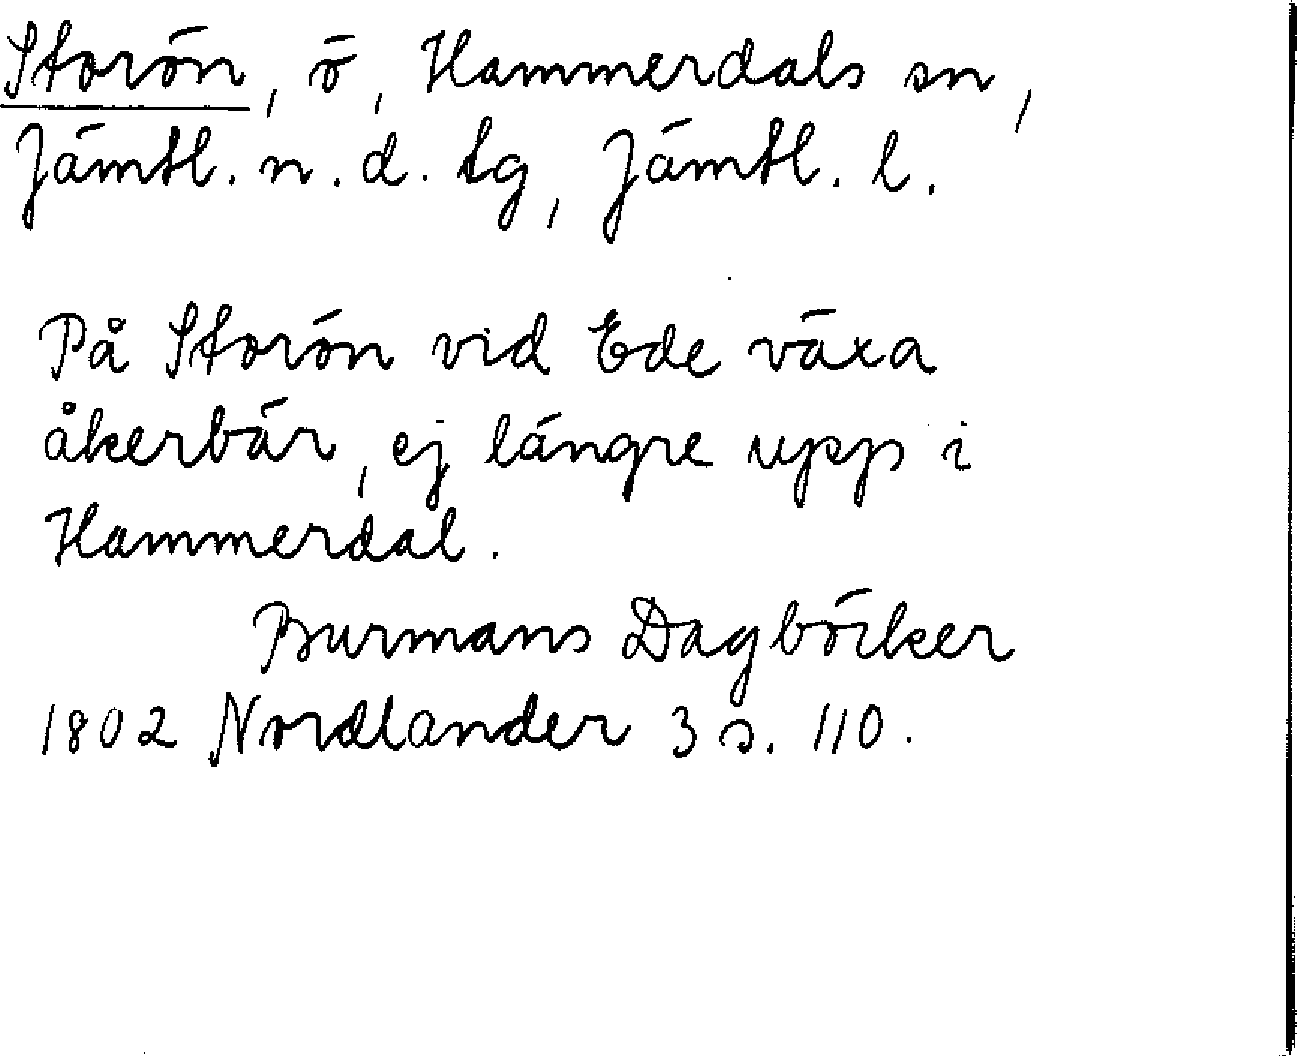 Storön, ö, Hammerdals sn,
Jämtl. n. d. tg, Jämtl. l.
På Storön vid Ede växa
åkerbär, ej längre upp i
Hammerdal.
Burmans Dagböcker
1802 Nordlander 3 s. 110.